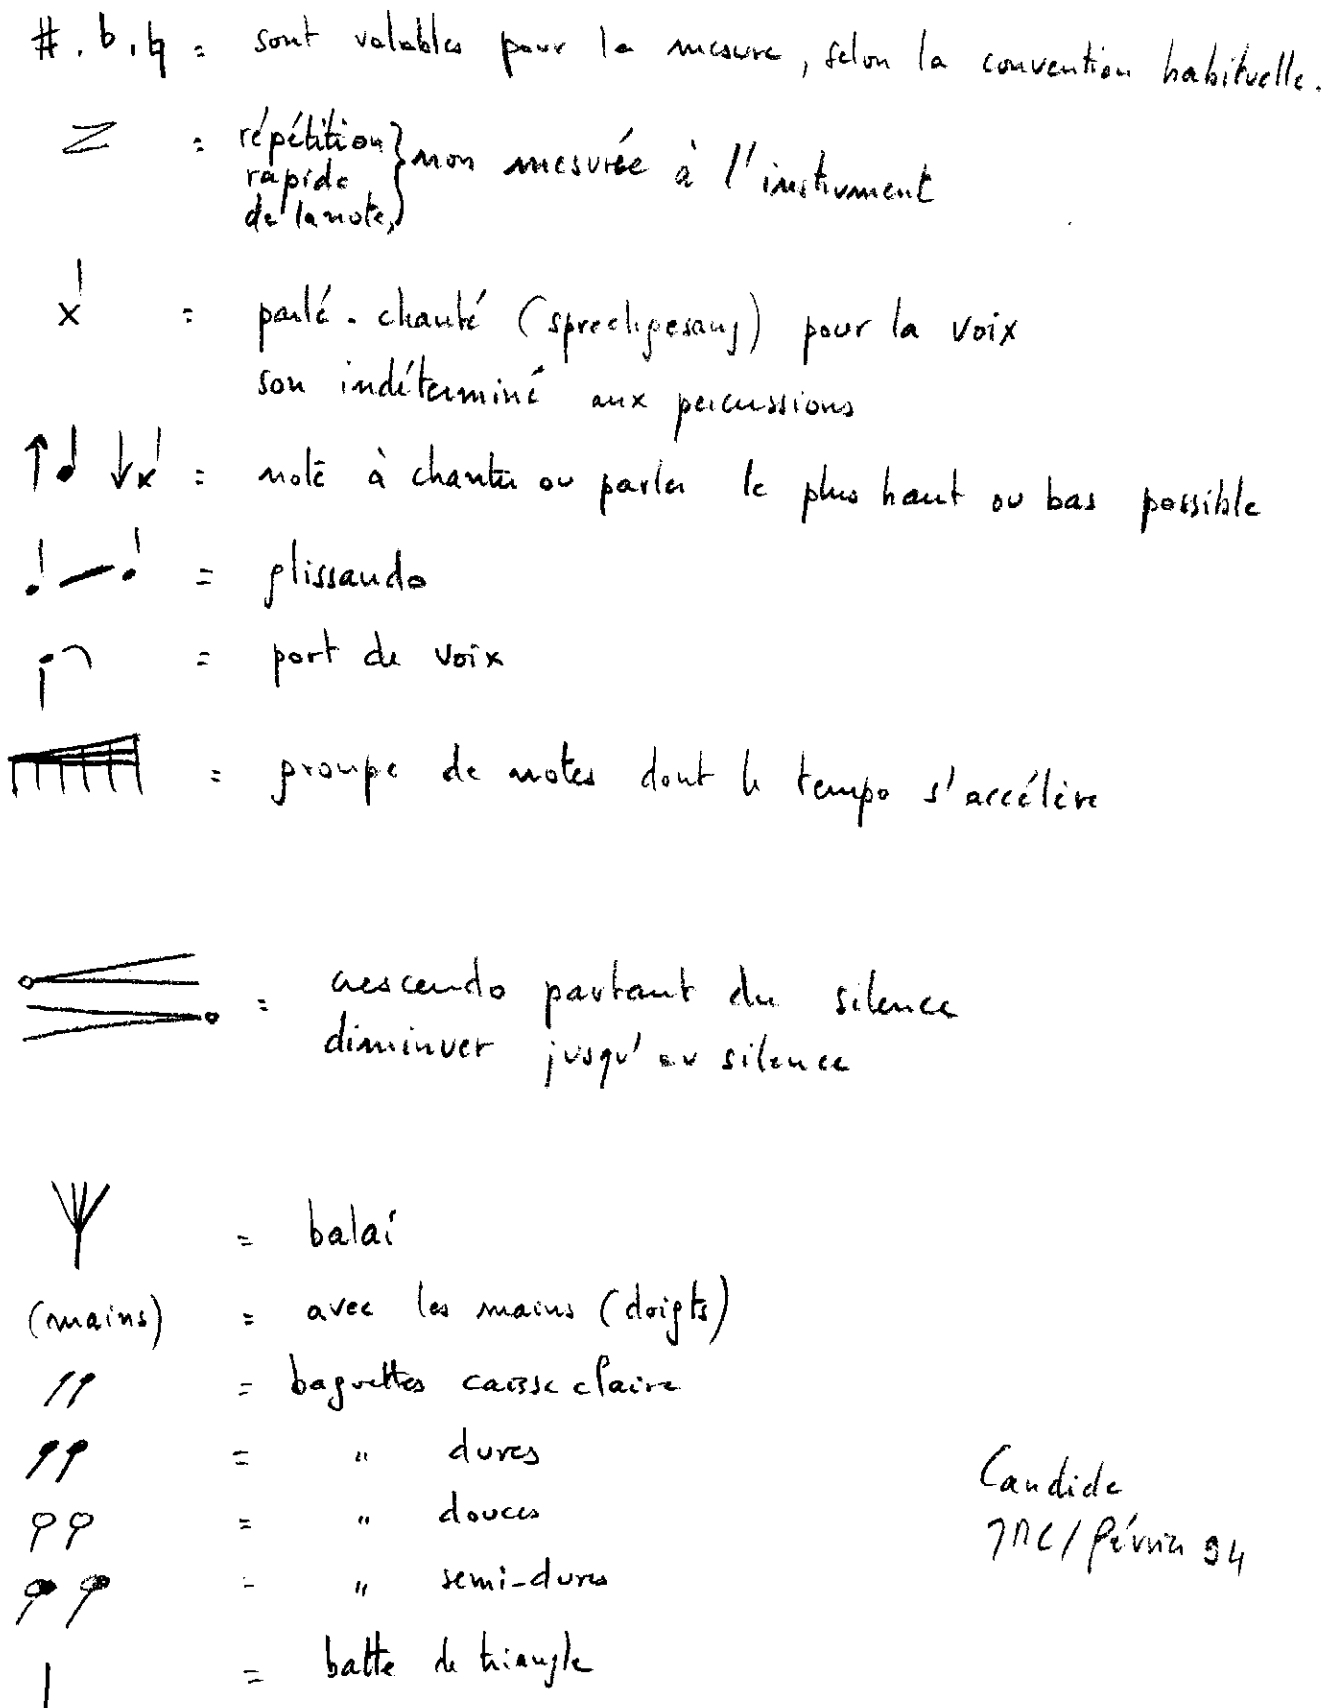 #, b, ♮ = sont valables pour la mesure, selon la convention habituelle.
Z = répétition
rapide
de la note, } non mesurée à l'instrument
x = parlé-chanté (sprechgesang) pour la voix
son indéterminé aux percussions
↑♩ ↓x = note à chanter ou parler le plus haut ou bas possible
= glissando
= port de voix
= groupe de notes dont le tempo s'accélère
= crescendo partant du silence
diminuer jusqu'au silence
= balai
(mains) = avec les mains (doigts)
= baguettes caisse claire
= " dures
= " douces
= " semi-dures
= batte de triangle
Candide
/ février 94